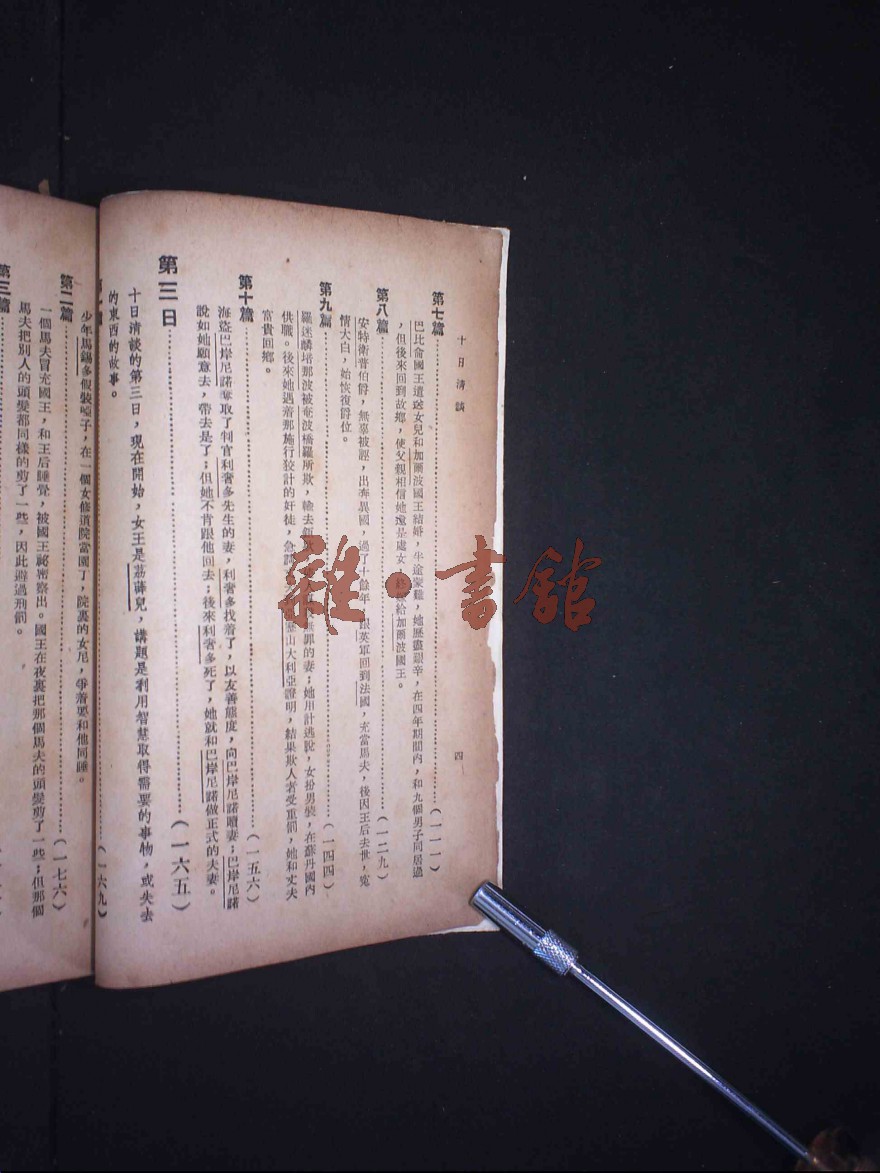 十日清談
四
第七篇……(一一一)
巴比侖國王遣送女兒和加爾波國王結婚,半途蒙難,她歷盡艱辛,在四年期間內,和九個男子同居過
,但後來回到故鄉,使父親相信她還是處女,給加爾波國王。
第八篇……(一二九)
安特衛普伯爵,無辜被誣,出奔異國,過了十餘年,跟英軍回到法國,充當馬夫,後因王后去世,寃
情大白,始恢復爵位。
第九篇……(一四四)
羅迷麟培那波被奄波橋羅所欺,輸去無罪的妻;她用計逃脫,女扮男裝,在蘇丹國內
供職。後來她遇着那施行狡計的奸徒,急山大利亞證明,結果欺人者受重罰,她和丈夫
富貴回鄉。
第十篇……(一五六)
海盜巴岸尼諾奪取了制官利奢多先生的妻,利奢多找着了,以友善態度,向巴岸尼諾贖妻;巴岸尼諾
說如她願意去,帶去是了;但她不肯跟他回去;後來利奢多死了,她就和巴岸尼諾做正式的夫妻。
第三日……(一六五)
十日清談的第三日,現在開始,女王是荔薛兒,講題是利用智慧取得需要的事物,或失去
的東西的故事。
(一六九)
少年馬錫多假裝啞子,在一個女修道院當園丁,院裏的女尼,爭着要和他同睡。
第二篇……(一七六)
一個馬夫冒充國王,和王后睡覺,被國王祕密察出。國王在夜裏把那個馬夫的頭髮剪了一些;但那個
馬夫把別人的頭髮都同樣的剪了一些,因此避過刑罰。
第三篇
雜·書館